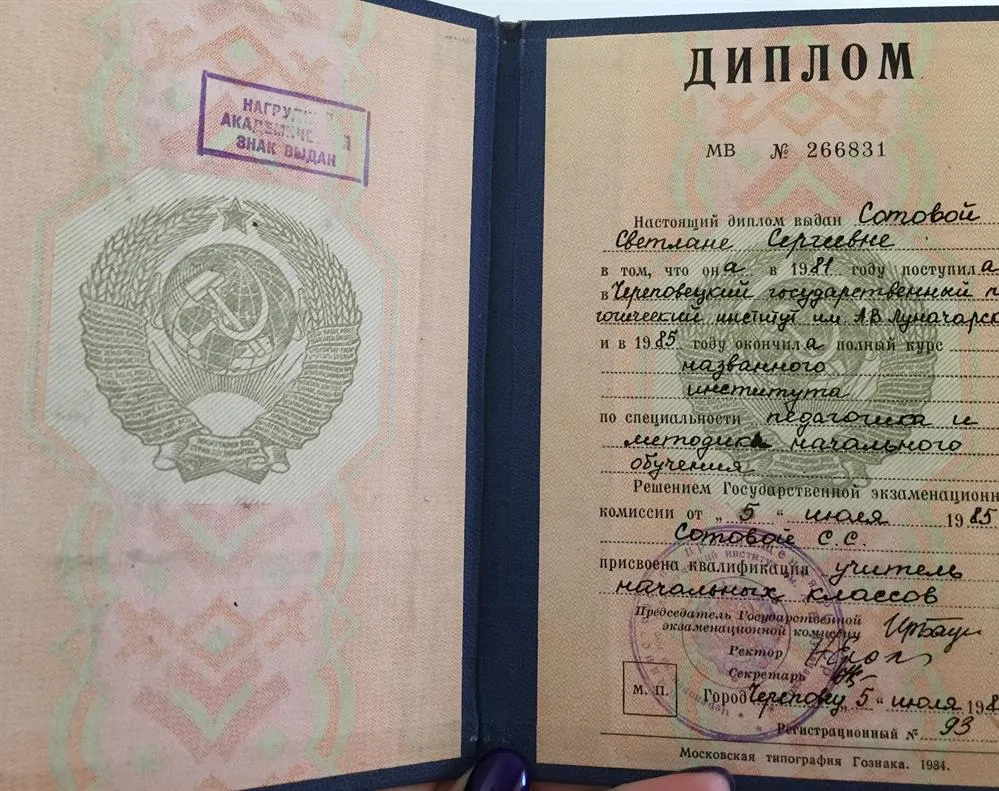 НАГРУДНЫЙ
АКАДЕМИЧЕСКИЙ
ЗНАК ВЫДАН
ДИПЛОМ
МВ № 266831
Настоящий диплом выдан Сотовой
Светлане Сергеевне
в том, что она в 1981 году поступила
в Череповецкий государственный п
гогический институт им. А.В. Луначарск
и в 1985 году окончила полный курс
названного
института
по специальности педагогика и
методика начального
обучения
Решением Государственной экзаменационн
комиссии от „5“ июля 1985
Сотовой С.С.
присвоена квалификация учитель
начальных классов
Председатель Государственной
экзаменационной комиссии
Ректор
Секретарь
М. П.
Город Череповец „5“ июля 198
Регистрационный № 93
Московская типография Гознака. 1984.